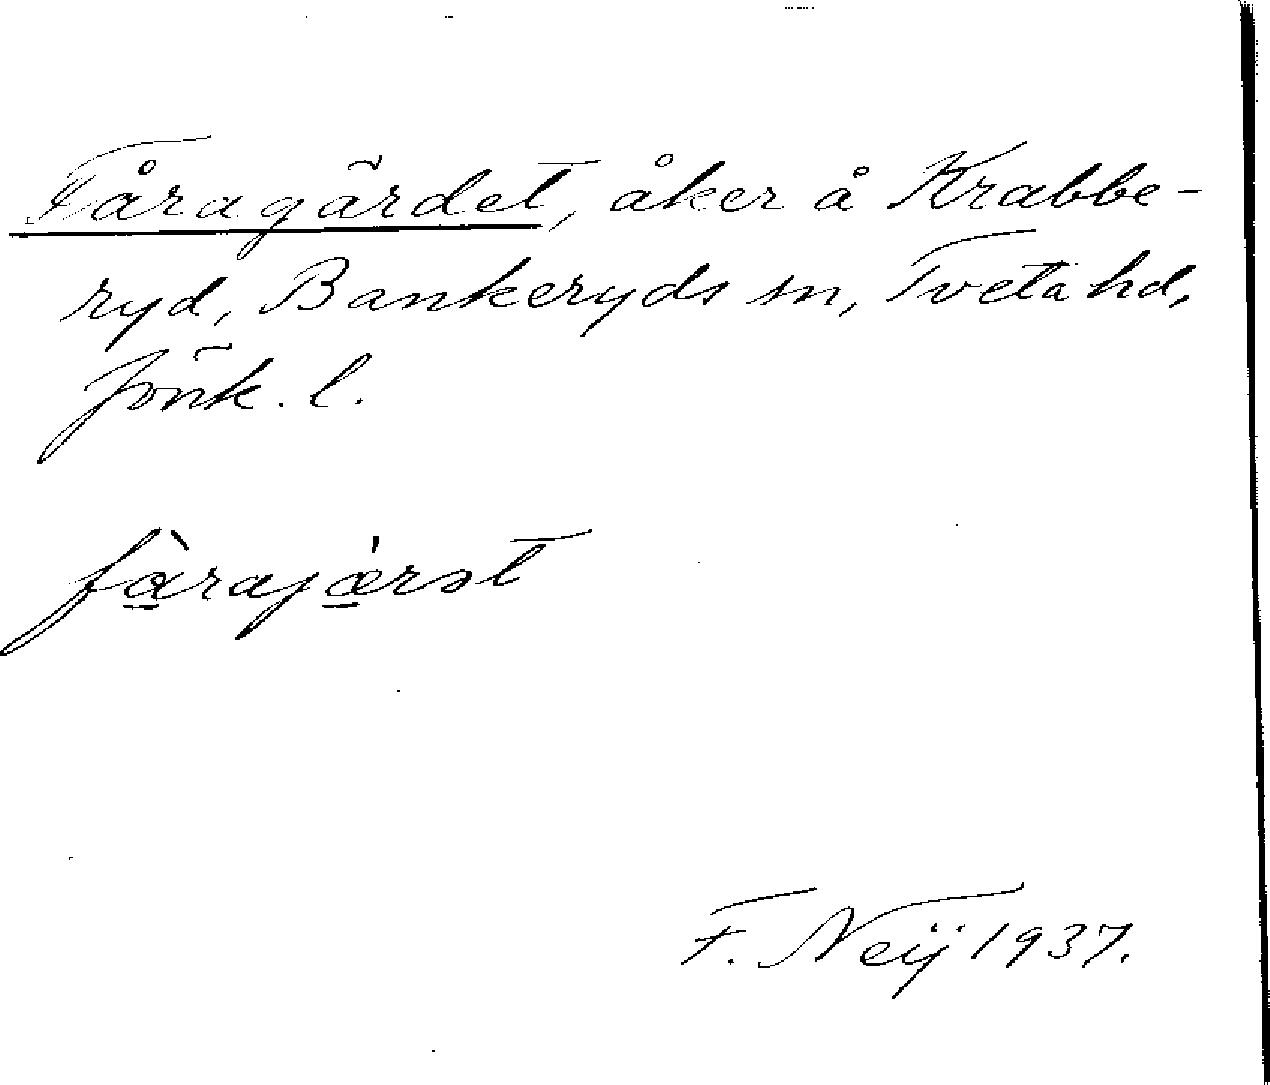 Fåragärdet, åker å Krabbe-
ryd, Bankeryds sn, Tveta hd,
Jönk. l.
F. Neij 1937.